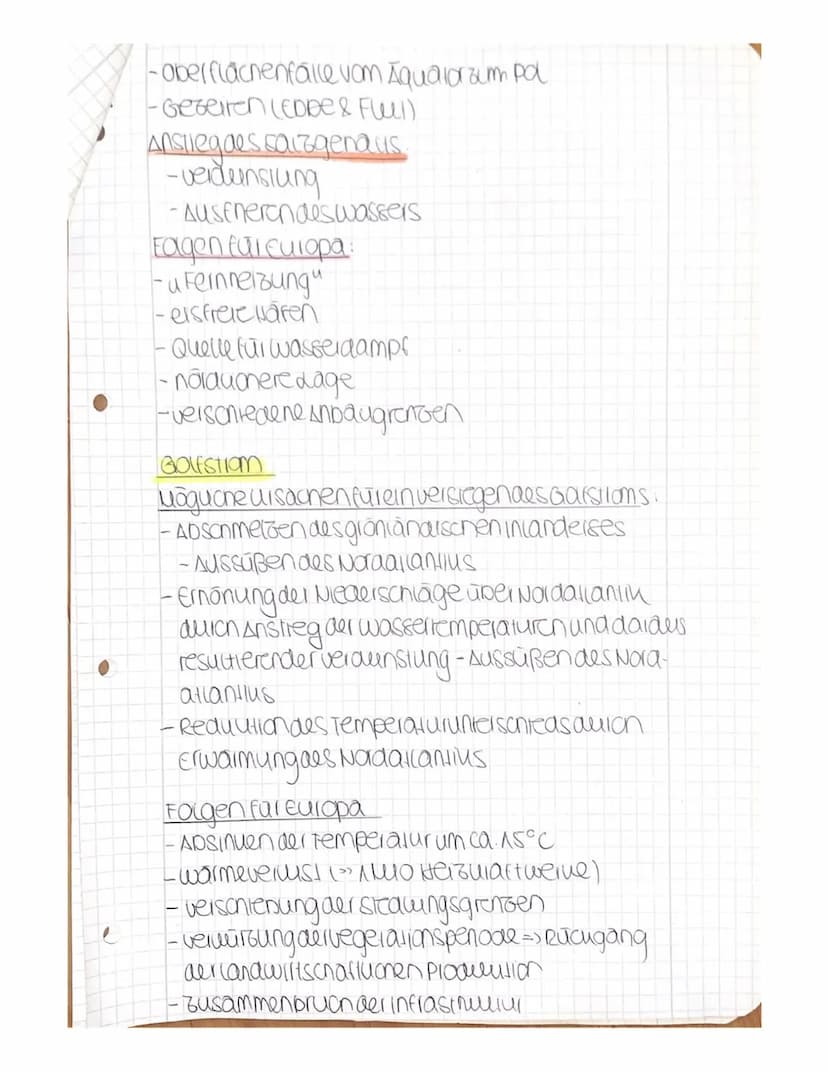 - Oberflächenfälle vom Äquator zum Pol
- Gezeiten (Ebbe & Flut)
Anstieg des Salzgehalts:
- Verdunstung
- Ausfrieren des Wassers
Folgen für Europa:
- "Fernheizung"
- eisfreie Häfen
- Quelle für Wasserdampf
- nördlichere Lage
- verschiedene Anbaugrenzen
Golfstrom
Mögliche Ursachen für ein Versiegen des Golfstroms:
- Abschmelzen des grönländischen Inlandeises
- Aussüßen des Nordatlantiks
- Erhöhung der Niederschläge über Nordatlantik
durch Anstieg der Wassertemperaturen und daraus
resultierender Verdunstung - Aussüßen des Nord-
atlantiks
- Reduktion des Temperaturunterschieds durch
Erwärmung des Nordatlantiks
Folgen für Europa
- Absinken der Temperatur um ca. 15°C
- Wärmeverlust (=> 1 Mio Heizkraftwerke)
- Verschiebung der Siedlungsgrenzen
- Verkürzung der Vegetationsperiode => Rückgang
der landwirtschaftlichen Produktion
- Zusammenbruch der Infrastruktur